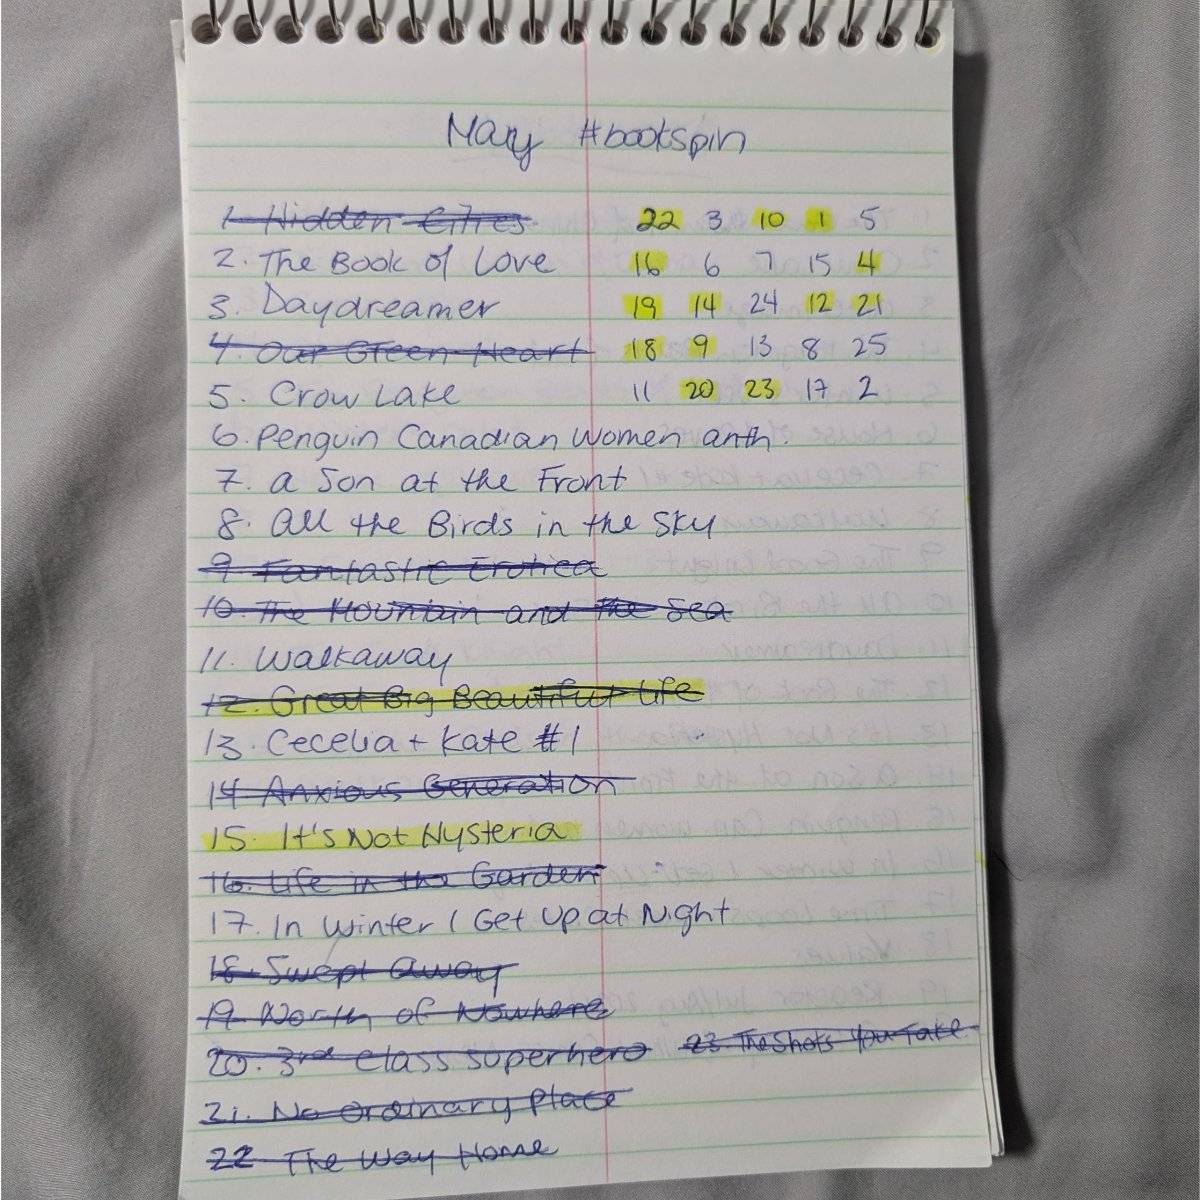 May #bookspin
1. Hidden Cities 22 3 10 1 5
2. The Book of Love 16 6 7 15 4
3. Daydreamer 19 14 24 12 21
4. Our Green Heart 18 9 13 8 25
5. Crow Lake 11 20 23 17 2
6. Penguin Canadian Women anth.
7. a Son at the Front
8. All the Birds in the Sky
9 Fantastic Erotica
10. The Mountain and the Sea
11. Walkaway
12. Great Big Beautiful Life
13. Cecelia + Kate #1
14 Anxious Generation
15. It's Not Hysteria
16. Life in the Garden
17. In Winter I Get Up at Night
18. Swept Away
19. North of Nowhere
20. 3rd Class Superhero 23. The Shots You Take
21. No Ordinary Place
22 The Way Home